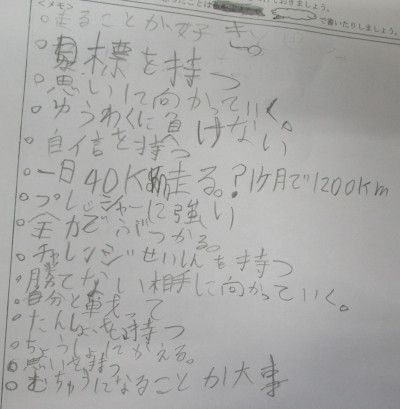 <メモ>
ておきましょう。
で書いたりしましょう。
○走ることが好き
○目標を持つ
○思いして向かっていく
○ゆうわくに負けない。
○自信を持つ
○一日40K走る。?1ヶ月で1200Km
○プレッシャーに強い
○全力でぶつかる。
○チャレンジせいしんを持つ
○勝てない相手に向かっていく。
○自分と戦って
○たんしょも持つ
○ちょうしょにかえる。
○思いを持つ
○むちゅうになることが大事